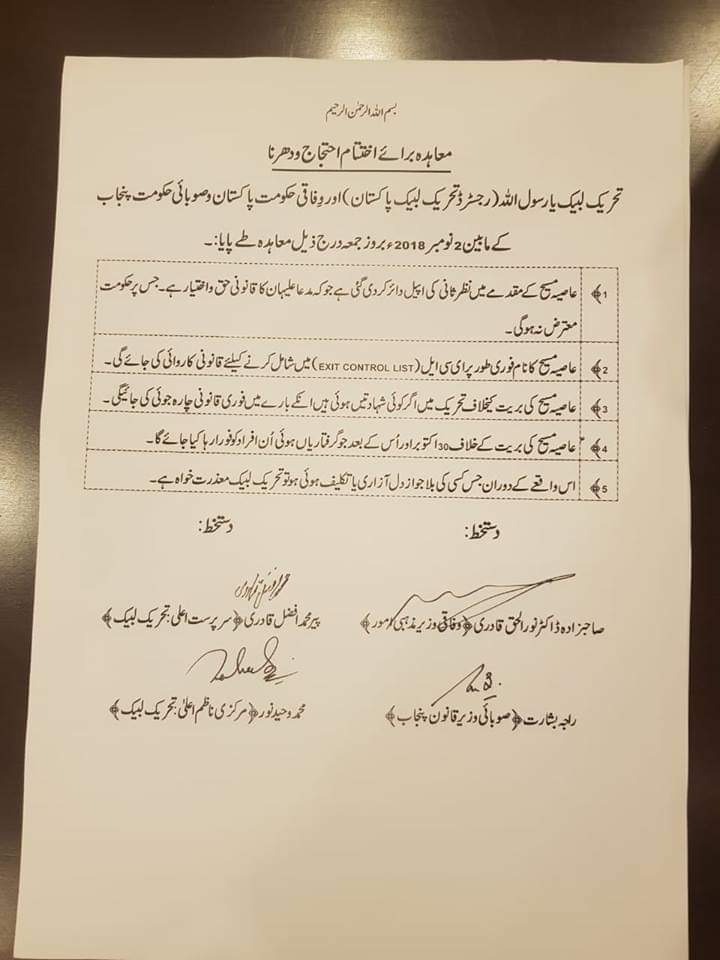 بسم اللہ الرحمٰن الرحیم
معاہدہ برائے اختتام احتجاج و دھرنا
تحریک لبیک یا رسول اللہ (رجسٹرڈ تحریک لبیک پاکستان) اور وفاقی حکومت پاکستان و صوبائی حکومت پنجاب
کے مابین 2 نومبر 2018ء بروز جمعہ درج ذیل معاہدہ طے پایا:۔
﴿1 عاصیہ مسیح کے مقدمے میں نظر ثانی کی اپیل دائر کردی گئی ہے جو کہ مدعا علیہان کا قانونی حق و اختیار ہے۔ جس پر حکومت
معترض نہ ہوگی۔
﴿2 عاصیہ مسیح کا نام فوری طور پر ای سی ایل (EXIT CONTROL LIST) میں شامل کرنے کیلئے قانونی کاروائی کی جائے گی۔
﴿3 عاصیہ مسیح کی بریت کیخلاف تحریک میں اگر کوئی شہادتیں ہوئی ہیں انکے بارے میں فوری قانونی چارہ جوئی کی جائیگی۔
﴿4 عاصیہ مسیح کی بریت کے خلاف 30 اکتوبر اور اُس کے بعد جو گرفتاریاں ہوئی اُن افراد کو فورا رہا کیا جائے گا۔
﴿5 اس واقعے کے دوران جس کسی کی بلا جواز دل آزاری یا تکلیف ہوئی ہو تو تحریک لبیک معذرت خواہ ہے۔
دستخط: دستخط:
صاحبزادہ ڈاکٹر نور الحق قادری ﴿وفاقی وزیر مذہبی امور﴾ پیر محمد افضل قادری ﴿سرپرست اعلی: تحریک لبیک﴾
راجہ بشارت ﴿صوبائی وزیر قانون پنجاب﴾ محمد وحید نور ﴿مرکزی ناظم اعلیٰ: تحریک لبیک﴾